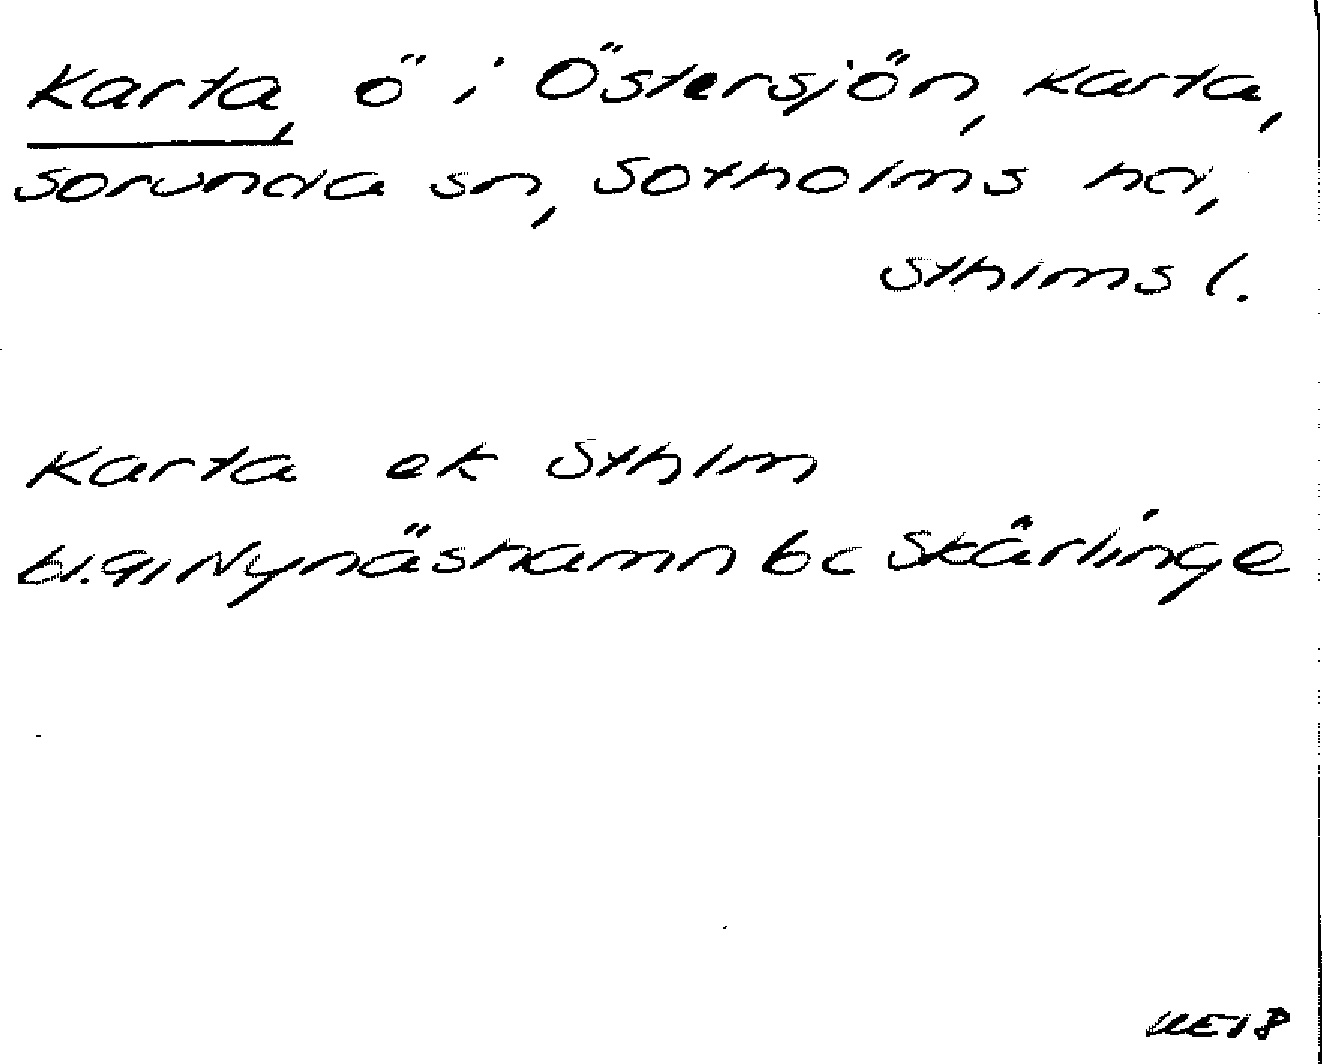 Karta, ö i Östersjön, Karta,
Sorunda sn, Sotholms hd,
Sthlms l.
Karta ek Sthlm
bl. 91 Nynäshamn 6c Skårlinge